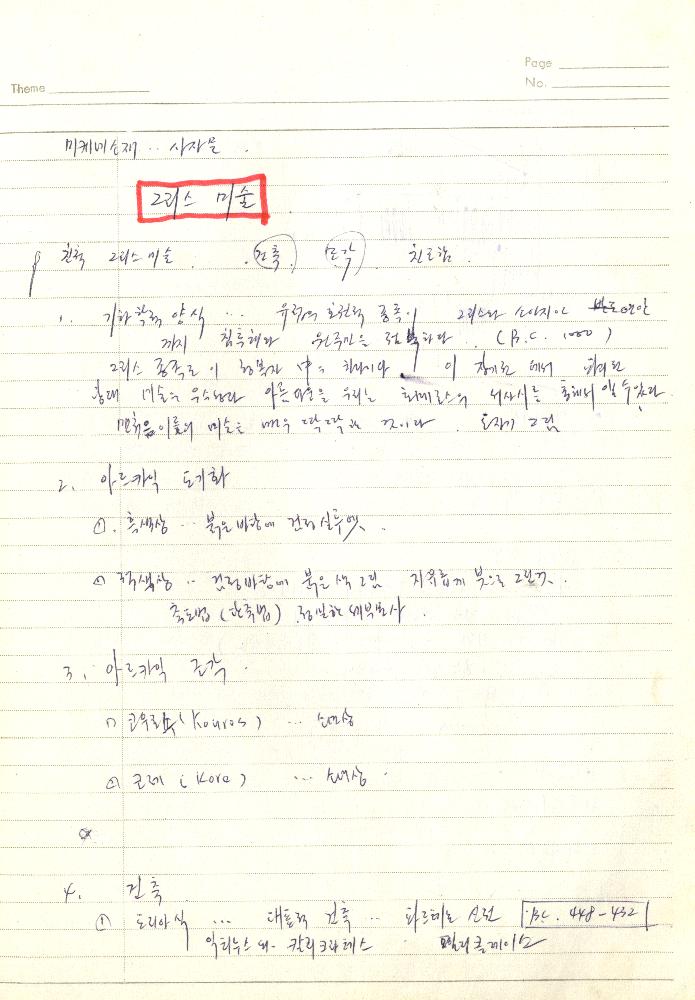 Page
Theme
No.
미케네 소재 .. 사자문 .
그리스 미술
그리스 미술 . 건축 조각 친호함 .
1. 기하학적 양식 ... 유럽의 호전적 종족이 그리스와 소아지아 연안
까지 침투해와 원주민을 정복하다 .. (B.C. 1000)
그리스 종족도 이 정복자 中 하나이다 이
미술의 우리는 호메로스의 서사시를 통해서 알 수 있다
이들의 미술은 매우 딱딱한 것이다 . 도자기 그림
2. 아르카익 도기화
①. 흑색상 ... 붉은 바탕에 검정 실루엣 .
② 적색상 .. 검정 바탕에 붉은 색 그림 자유롭게 붓으로 그린 것 .
축도법 (단축법) 정밀한 세부묘사 .
3. 아르카익 조각 .
① 코우로스 (Kouros) ... 소년상
② 코레 (Kore) ... 소녀상 .
4. 건축
① 도리아식 ... 대표적 건축 ... 파르테논 신전 BC. 448-432
익티누스 와 - 칼리크라테스 페리클레이스